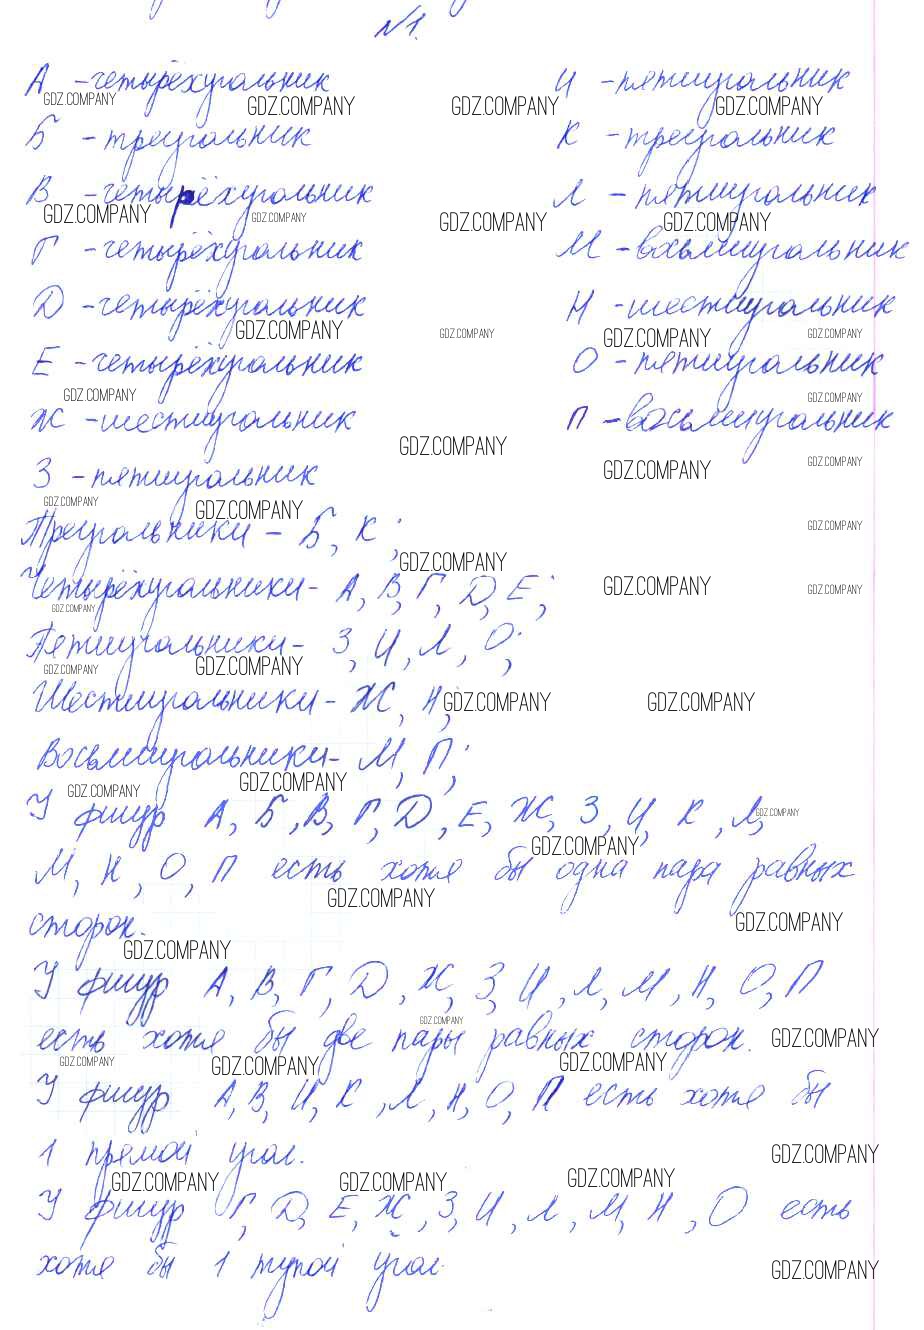 №1.
А - четырёхугольник
Б - треугольник
В - четырёхугольник
Г - четырёхугольник
Д - четырёхугольник
Е - четырёхугольник
Ж - шестиугольник
З - пятиугольник
И - пятиугольник
К - треугольник
Л - пятиугольник
М - восьмиугольник
Н - шестиугольник
О - пятиугольник
П - восьмиугольник
Треугольники - Б, К;
Четырёхугольники - А, В, Г, Д, Е;
Пятиугольники - З, И, Л, О;
Шестиугольники - Ж, Н;
Восьмиугольники - М, П;
У фигур А, Б, В, Г, Д, Е, Ж, З, И, К, Л,
М, Н, О, П есть хотя бы одна пара равных
сторон.
У фигур А, В, Г, Д, Ж, З, И, Л, М, Н, О, П
есть хотя бы две пары равных сторон.
У фигур А, В, И, К, Л, Н, О, П есть хотя бы
1 прямой угол.
У фигур Г, Д, Е, Ж, З, И, Л, М, Н, О есть
хотя бы 1 тупой угол.
GDZ.COMPANY